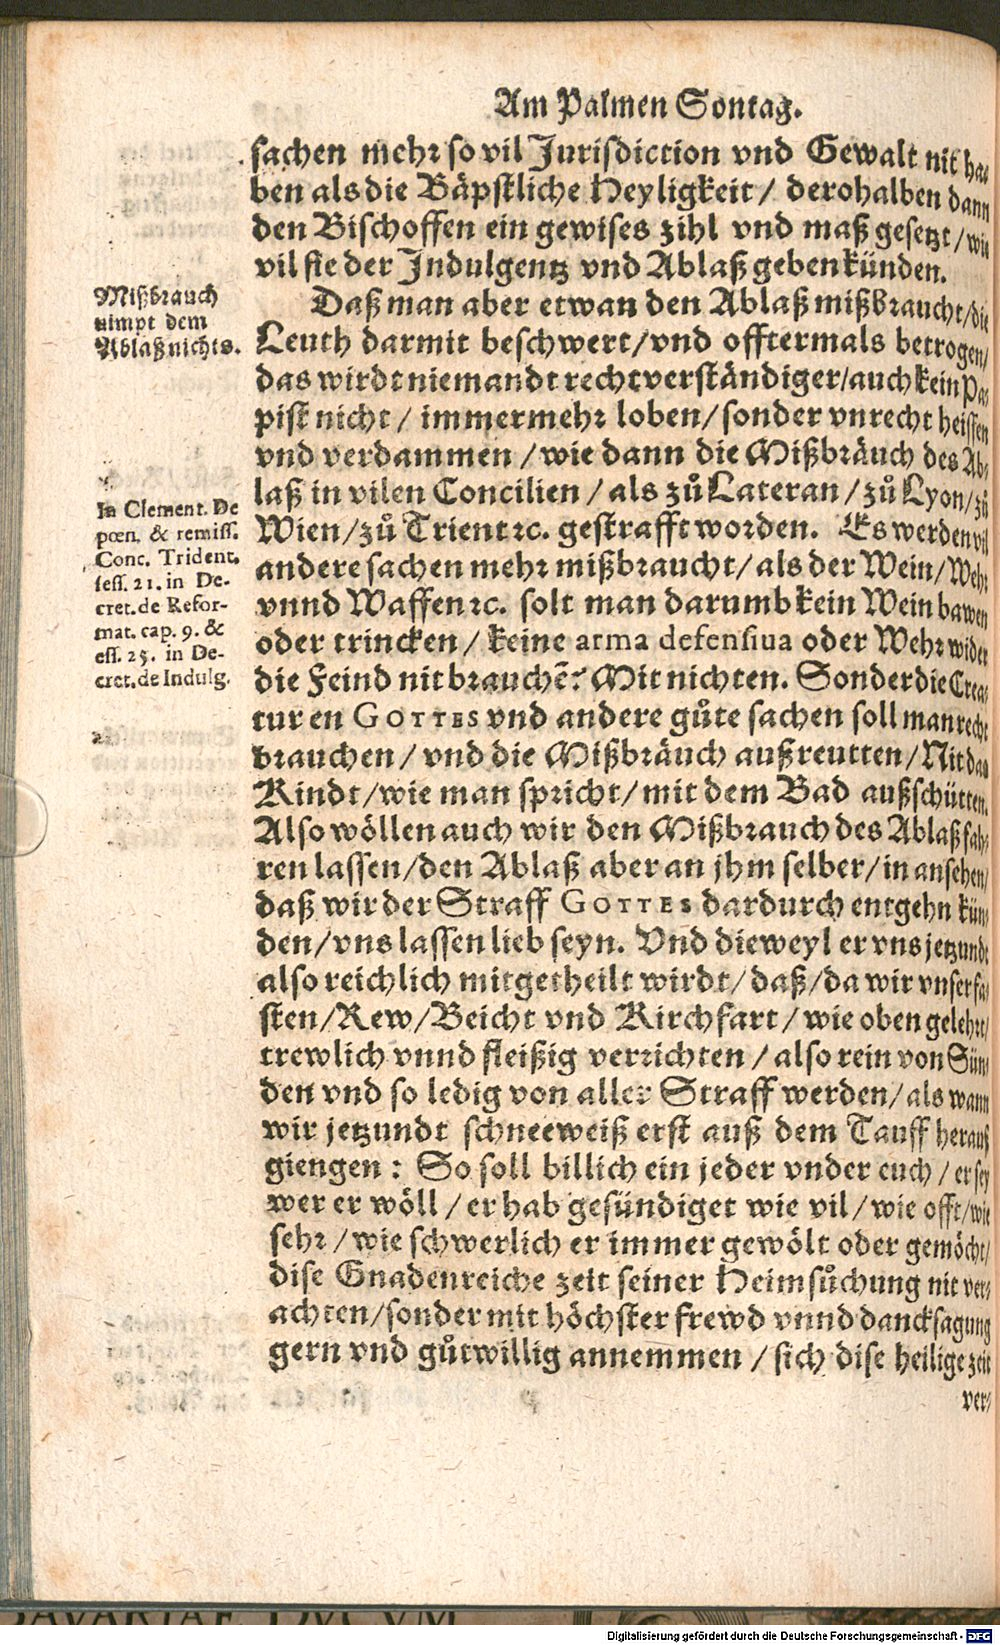 Am Palmen Sontag.
sachen mehr so vil Jurisdiction vnd Gewalt nit ha-
ben als die Bäpstliche Heyligkeit / derohalben dann
den Bischoffen ein gewises zihl vnd maß gesetzt / wie
vil sie der Indulgentz vnd Ablaß geben künden.
Daß man aber etwan den Ablaß mißbraucht / die
Leuth darmit beschwert / vnd offtermals betrogen /
das wirdt niemandt rechtverständiger / auch kein Pa-
pist nicht / immermehr loben / sonder vnrecht heissen
vnd verdammen / wie dann die Mißbräuch des Ab-
laß in vilen Concilien / als zů Lateran / zů Lyon / zů
Wien / zů Trient ꝛc. gestrafft worden. Es werden vil
andere sachen mehr mißbraucht / als der Wein / Wehr
vnnd Waffen ꝛc. solt man darumb kein Wein bawen
oder trincken / keine arma defensiua oder Wehr wider
die Feind nit brauchẽ? Mit nichten. Sonder die Crea-
turen GOTTES vnd andere gůte sachen soll man recht
brauchen / vnd die Mißbräuch außreutten / Nit das
Kindt / wie man spricht / mit dem Bad außschütten.
Also wöllen auch wir den Mißbrauch des Ablaß fah-
ren lassen / den Ablaß aber an jhm selber / in ansehen /
daß wir der Straff GOTTES dardurch entgehn kün-
den / vns lassen lieb seyn. Vnd dieweyl er vns jetzundt
also reichlich mitgetheilt wirdt / daß / da wir vnser fa-
sten / Rew / Beicht vnd Kirchfart / wie oben gelehrt /
trewlich vnnd fleißig verrichten / also rein von Sün-
den vnd so ledig von aller Straff werden / als wann
wir jetzundt schneeweiß erst auß dem Tauff herauß
giengen : So soll billich ein jeder vnder euch / er sey
wer er wöll / er hab gesündiget wie vil / wie offt / wie
sehr / wie schwerlich er immer gewölt oder gemöcht /
dise Gnadenreiche zeit seiner Heimsůchung nit ver-
achten / sonder mit höchster frewd vnnd dancksagung
gern vnd gůtwillig annemmen / sich dise heilige zeit
ver-
Mißbrauch
nimpt dem
Ablaß nichts.
In Clement. De
pœn. & remiss.
Conc. Trident.
sess. 21. in De-
cret. de Refor-
mat. cap. 9. &
ess. 25. in De-
cret. de Indulg.
BAVARIAE DVCVM
Digitalisierung gefördert durch die Deutsche Forschungsgemeinschaft - DFG